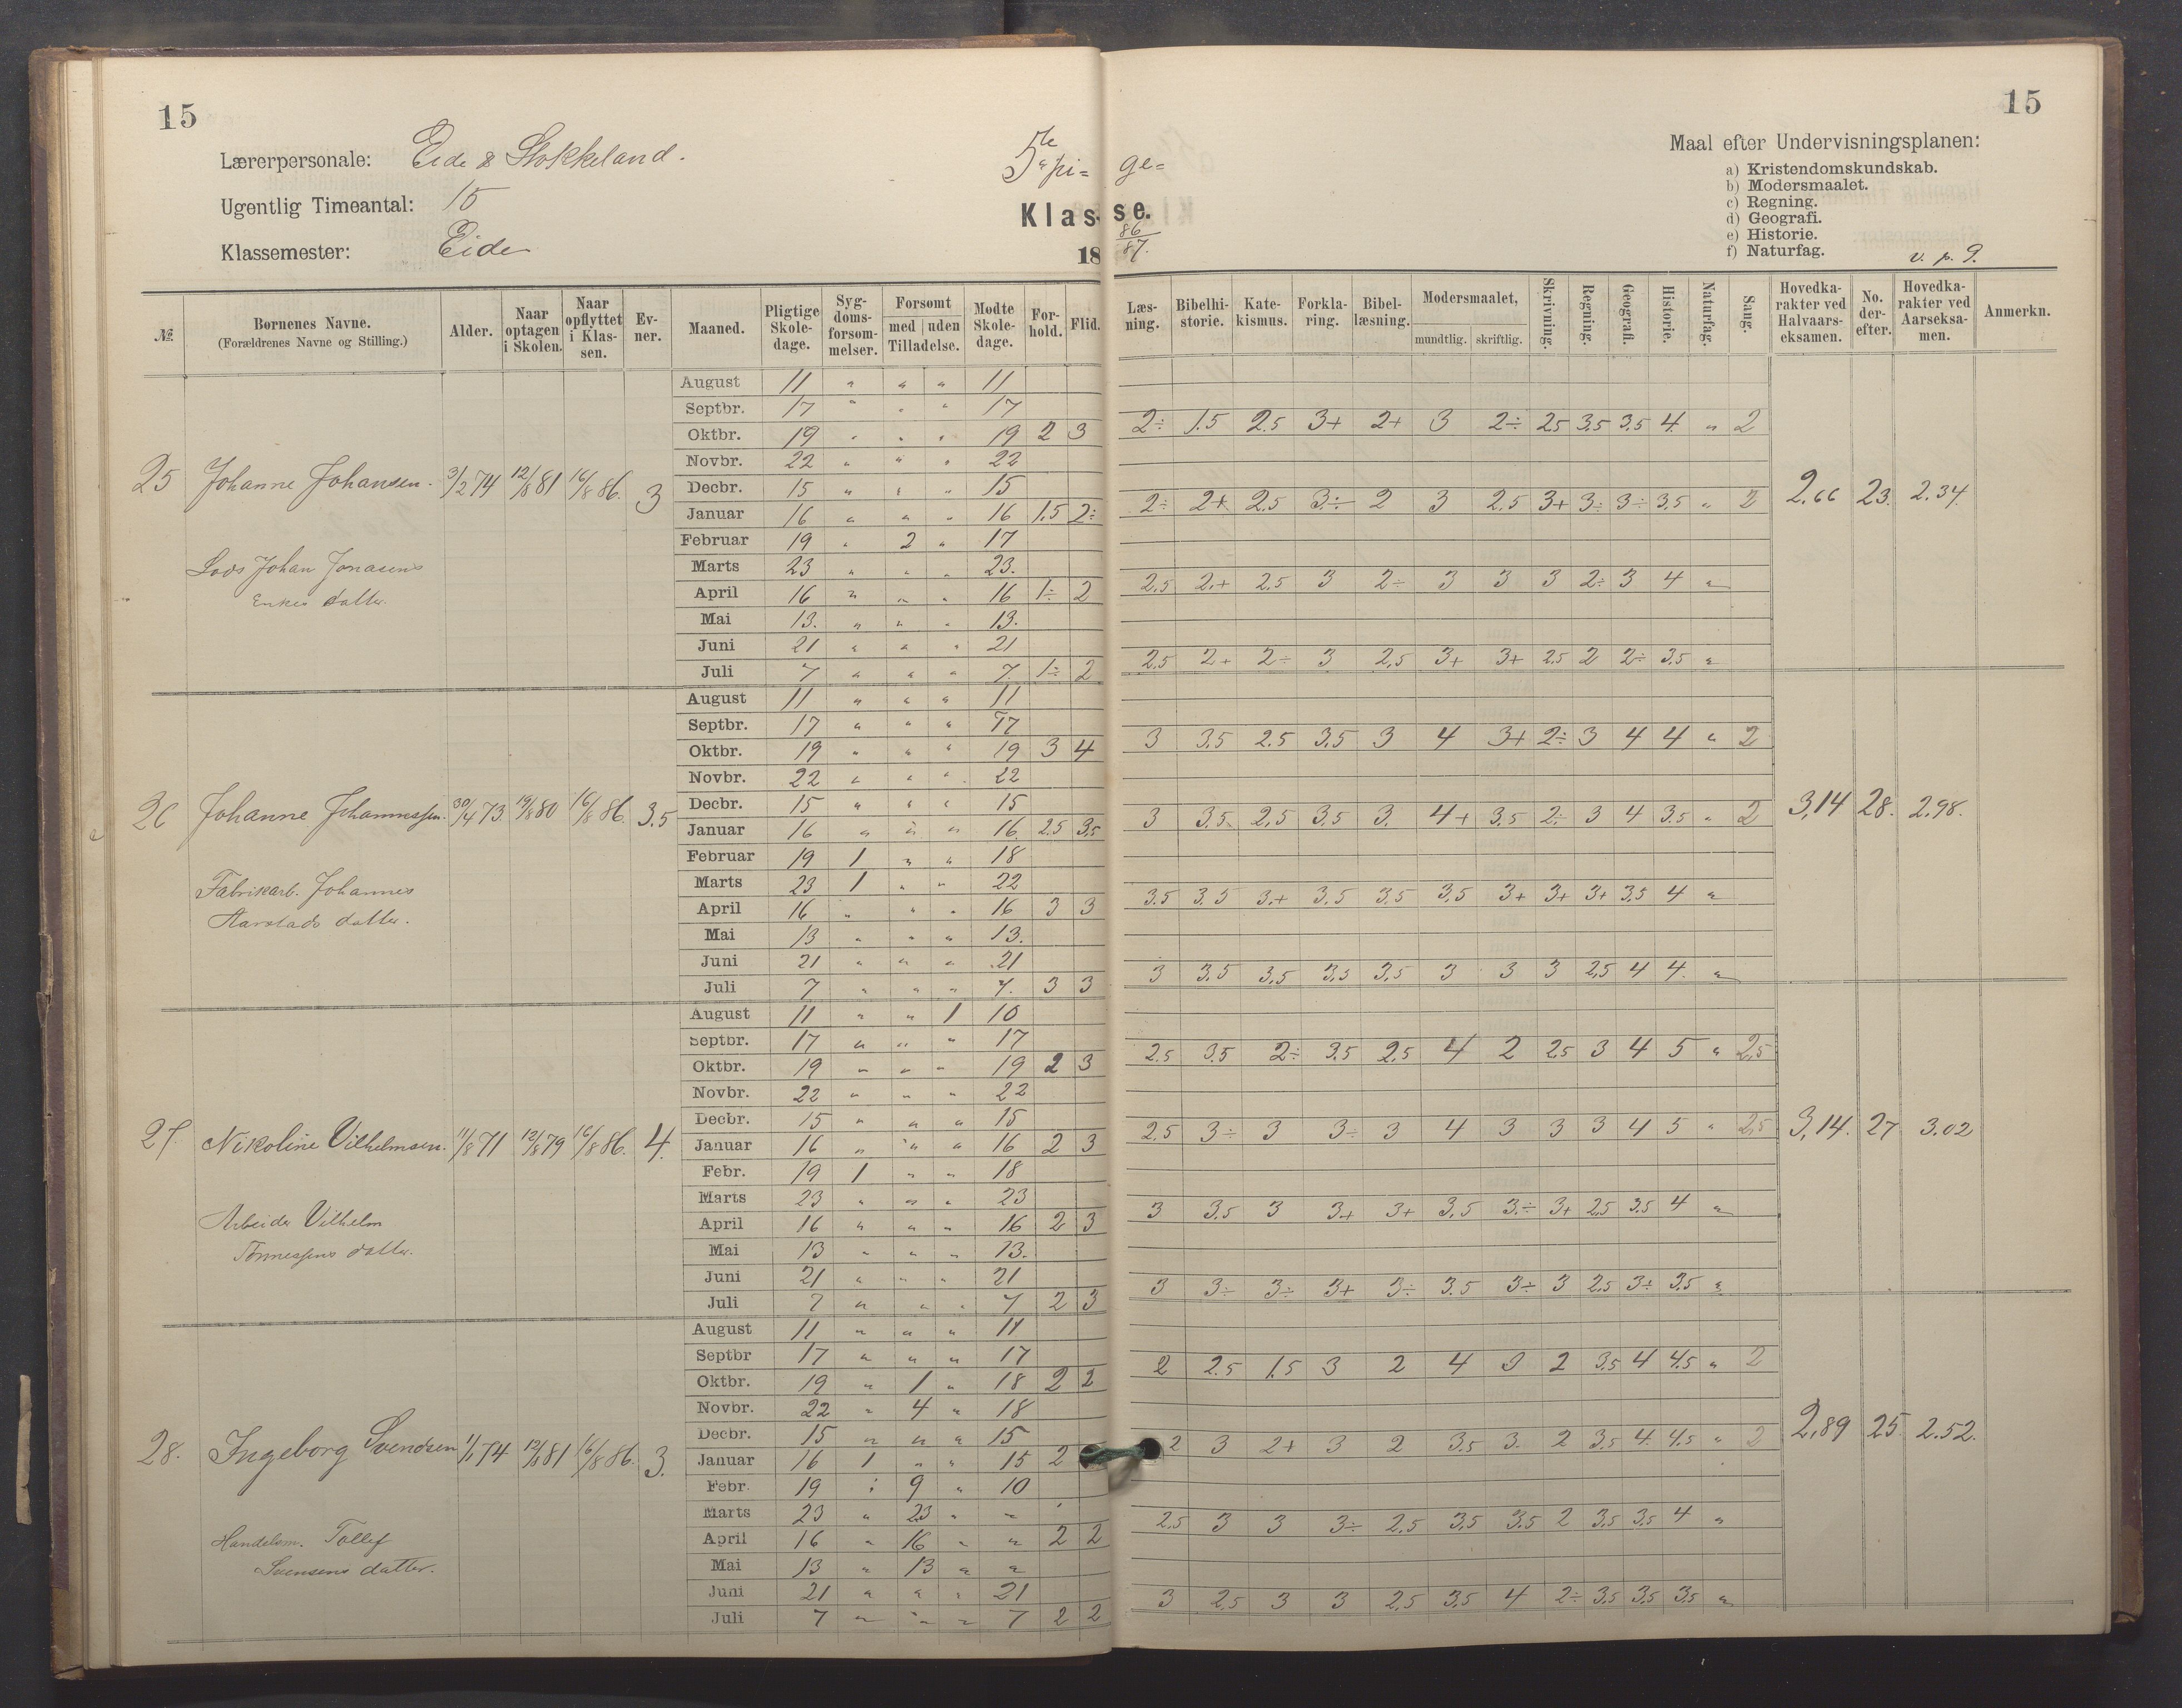 15
15
Lærerpersonale: Eide & Stokkeland.
Ugentlig Timeantal: 15
Klassemester: Eide
5te pi= ge=
Klasse.
18 86/87.
Maal efter Undervisningsplanen:
a) Kristendomskundskab.
b) Modersmaalet.
c) Regning.
d) Geografi.
e) Historie.
f) Naturfag.
v. p. 9.
№ | Børnenes Navne. (Forældrenes Navne og Stilling.) | Alder. | Naar optagen i Skolen. | Naar opflyttet i Klassen. | Evner. | Maaned. | Pligtige Skoledage. | Sygdomsforsømmelser. | Forsømt med | uden Tilladelse. | Mødte Skoledage. | Forhold. | Flid. | Læsning. | Bibelhistorie. | Katekismus. | Forklaring. | Bibellæsning. | Modersmaalet, mundtlig. | skriftlig. | Skrivning. | Regning. | Geografi. | Historie. | Naturfag. | Sang. | Hovedkarakter ved Halvaarseksamen. | No. derefter. | Hovedkarakter ved Aarseksamen. | Anmerkn.
25 Johanne Johansen. 3/2 74 12/8 81 16/8 86. 3
Lods Johan Jonasens
Enkes datter.
August 11 " " " 11
Septbr. 17 " " " 17
Oktbr. 19 " " " 19 2 3 2÷ 1.5 2.5 3+ 2+ 3 2÷ 2.5 3.5 3.5 4 " 2
Novbr. 22 " " " 22
Decbr. 15 " " " 15
Januar 16 " " " 16 1.5 2÷ 2÷ 2+ 2.5 3÷ 2 3 2.5 3+ 3÷ 3÷ 3.5 " 2 2.66 23. 2.34.
Februar 19 " 2 " 17
Marts 23 " " " 23.
April 16 " " " 16 1÷ 2 2.5 2+ 2.5 3 2÷ 3 3 3 2÷ 3 4 "
Mai 13. " " " 13.
Juni 21 " " " 21
Juli 7 " " " 7. 1÷ 2 2.5 2+ 2÷ 3 2.5 3+ 3+ 2.5 2 2÷ 3.5 "
26 Johanne Johannessen. 30/4 73. 19/8 80 16/8 86. 3.5
Fabrikarb. Johannes
Aarstads datter.
August 11 " " " 11
Septbr. 17 " " " 17
Oktbr. 19 " " " 19 3 4 3 3.5 2.5 3.5 3 4 3+ 2÷ 3 4 4 " 2
Novbr. 22 " " " 22
Decbr. 15 " " " 15
Januar 16 " " " 16. 2.5 3.5 3 3.5 2.5 3.5 3. 4+ 3.5 2÷ 3 4 3.5 " 2 3,14 28. 2.98.
Februar 19 1 " " 18
Marts 23 1 " " 22
April 16 " " " 16 3 3 3.5 3.5 3+ 3.5 3.5 3.5 3+ 3+ 3+ 3.5 4 "
Mai 13 " " " 13.
Juni 21 " " " 21
Juli 7 " " " 7. 3 3 3 3.5 3.5 3.5 3.5 3 3 3 2.5 4 4. "
27. Nikoline Vilhelmsen. 11/8 71 12/8 79 16/8 86. 4.
Arbeider Vilhelm
Tønnessens datter.
August 11 " " 1 10
Septbr. 17 " " " 17
Oktbr. 19 " " " 19 2 3 2.5 3.5 2÷ 3.5 2.5 4 2 2.5 3 4 5 " 2.5
Novbr. 22 " " " 22
Decbr. 15 " " " 15
Januar 16 " " " 16 2 3 2.5 3÷ 3 3÷ 3 4 3 3 3 4 5 " 2.5 3,14. 27 3.02
Febr. 19 1 " " 18
Marts 23 " " " 23
April 16 " " " 16 2 3 3 3.5 3 3+ 3+ 3.5 3÷ 3+ 2.5 3.5 4 "
Mai 13 " " " 13.
Juni 21 " " " 21
Juli 7 " " " 7 2 3 3 3÷ 3÷ 3+ 3÷ 3.5 3÷ 3 2.5 3÷ 3.5 "
28. Ingeborg Svendsen 1/1 74 12/8 81 16/8 86. 3.
Handelsm. Tollef
Svensens datter.
August 11 " " " 11
Septbr 17 " " " 17
Oktbr. 19 " 1 " 18 2 2 2 2.5 1.5 3 2 4 3 2 3.5 4 4.5 " 2
Novbr. 22 " 4 " 18
Decbr. 15 " " " 15
Januar 16 1 " " 15 2 2 3 2+ 3 2 3.5 3. 2 3.5 4. 4.5 " 2 2,89 25. 2.52.
Febr. 19 " 9 " 10
Marts 23 " 23 " "
April 16 " 16 " " 2 2 2.5 3 3 3÷ 2.5 3.5 3.5 2 3.5 3.5 4 "
Mai 13 " 13 " "
Juni 21 " " " 21
Juli 7 " " " 7 2 2 3 2.5 3 3 2.5 3.5 4 2÷ 3.5 3.5 3.5 "